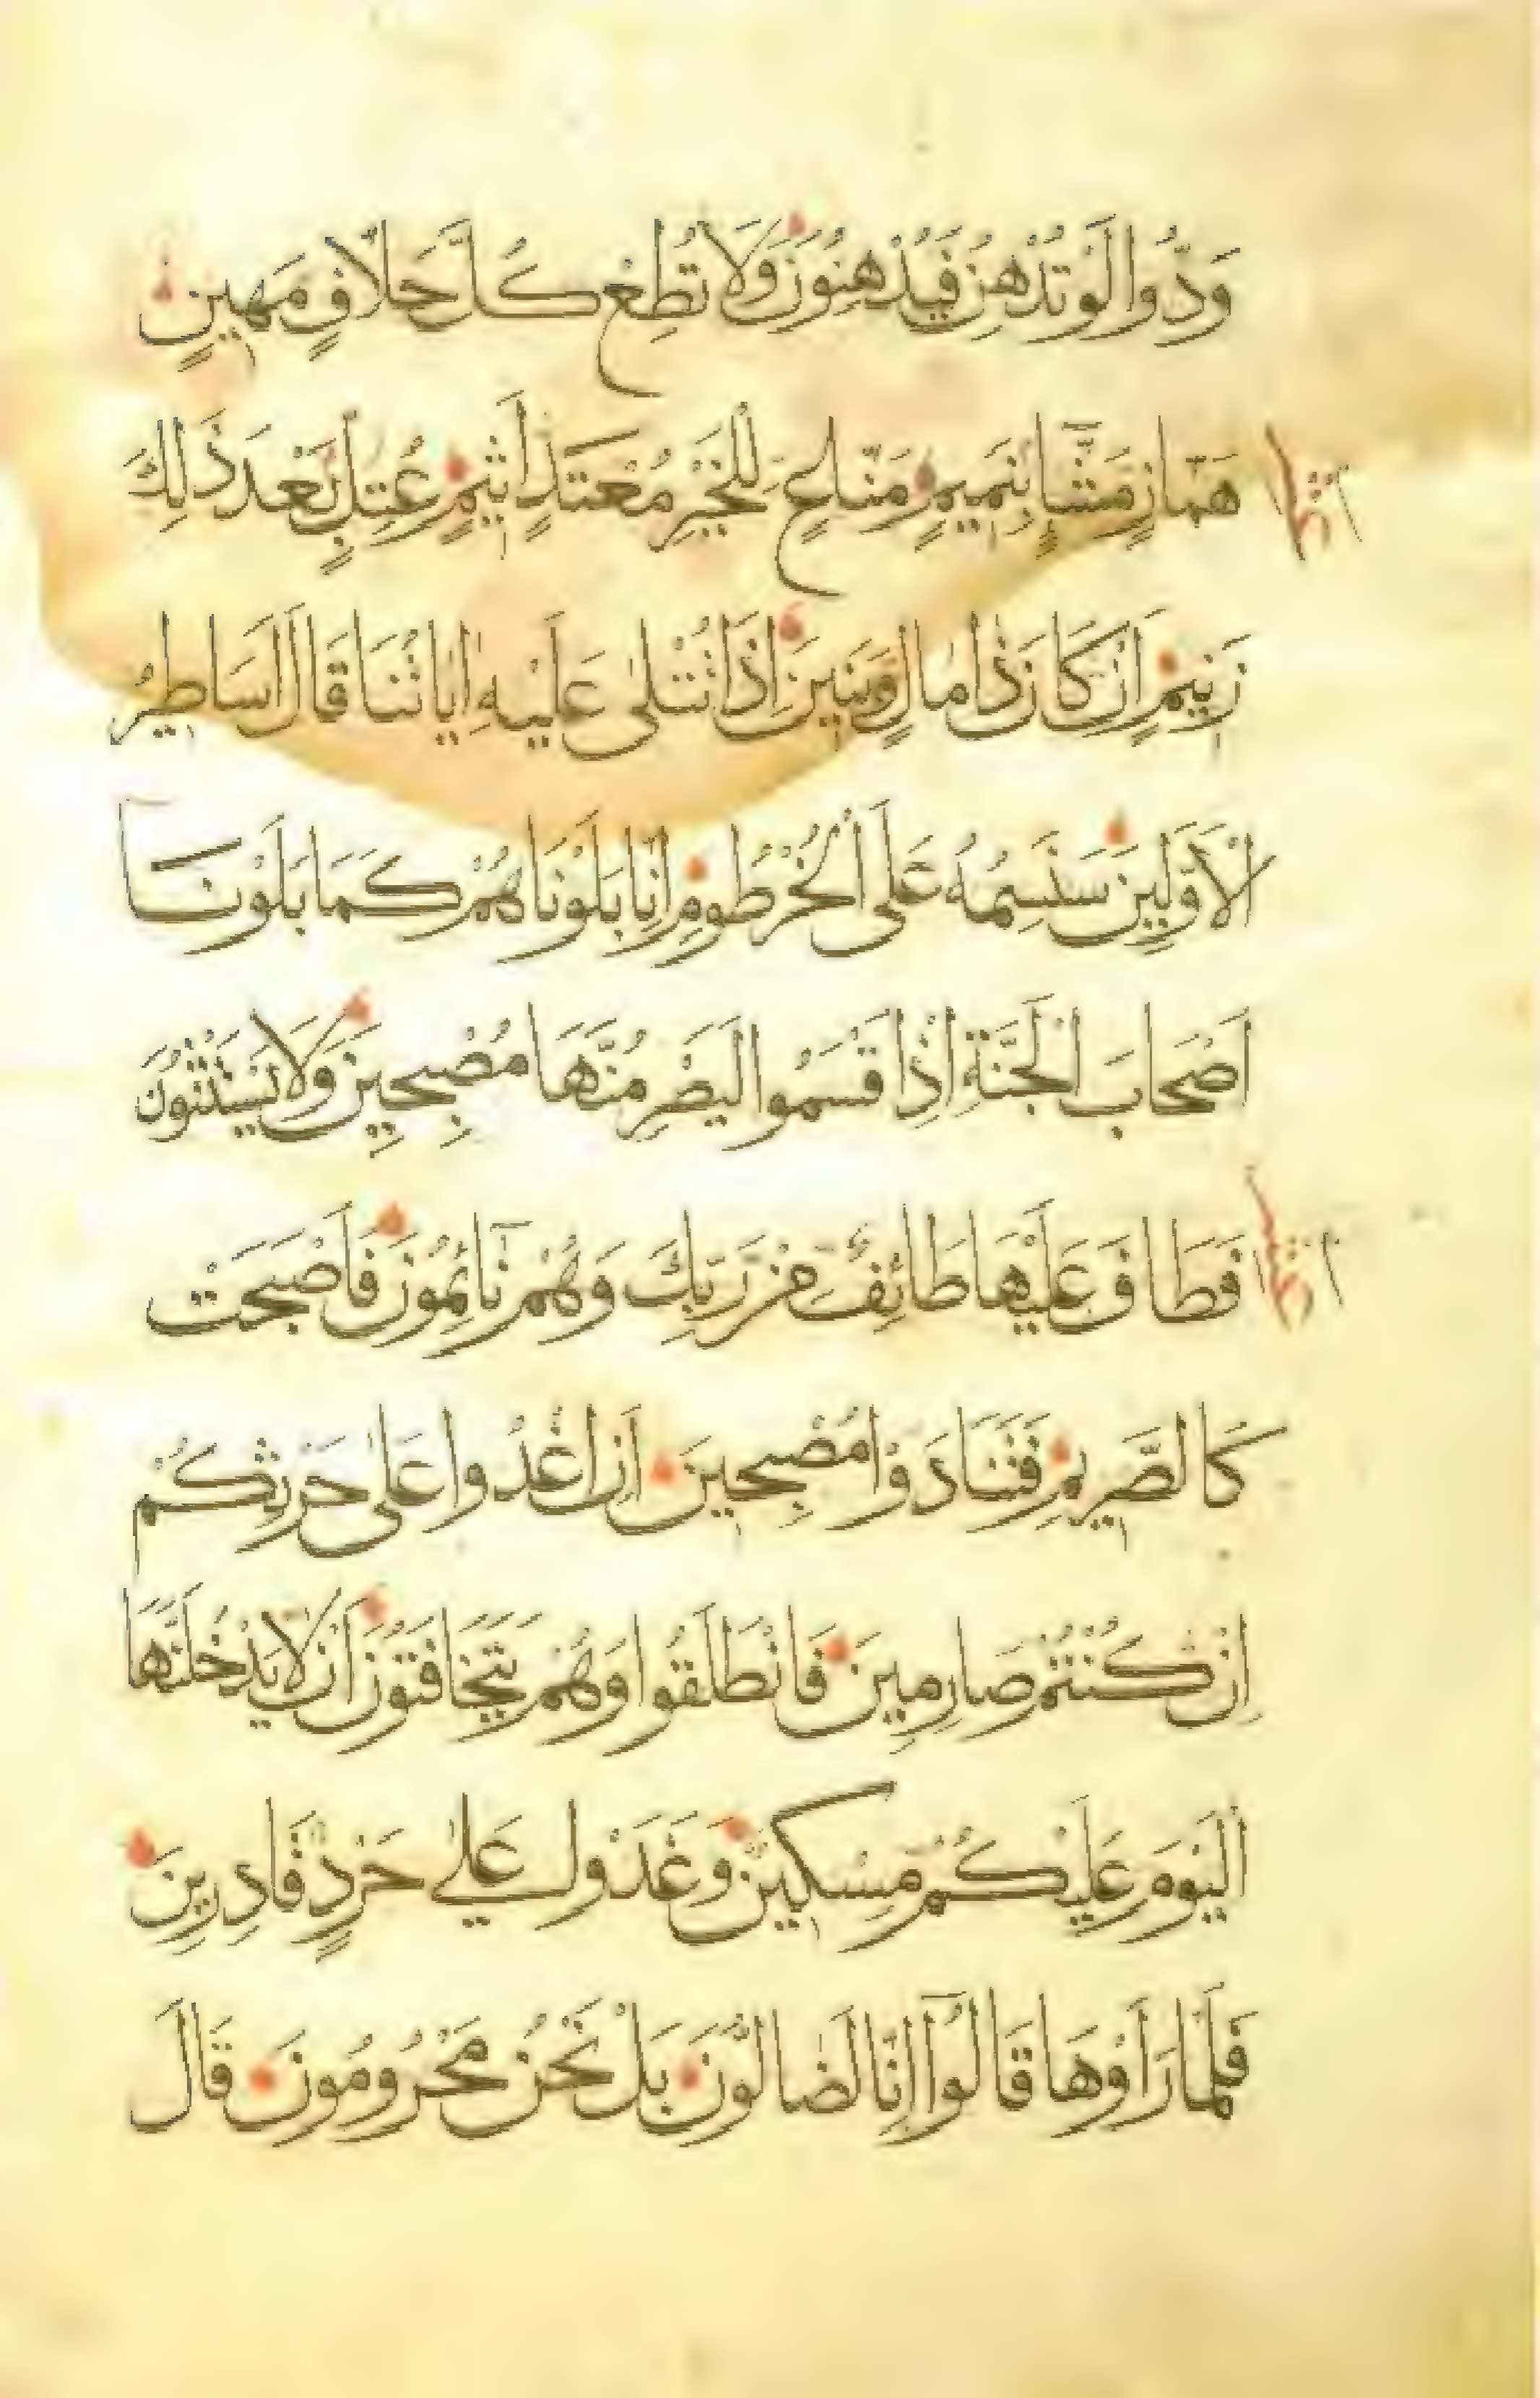 وَدُّوا لَوْ تُدْهِنُ فَيُدْهِنُونَ وَلَا تُطِعْ كُلَّ حَلَّافٍ مَهِينٍ
هَمَّازٍ مَشَّاءٍ بِنَمِيمٍ مَنَّاعٍ لِلْخَيْرِ مُعْتَدٍ أَثِيمٍ عُتُلٍّ بَعْدَ ذَلِكَ
زَنِيمٍ أَنْ كَانَ ذَا مَالٍ وَبَنِينَ إِذَا تُتْلَى عَلَيْهِ آيَاتُنَا قَالَ أَسَاطِيرُ
الْأَوَّلِينَ سَنَسِمُهُ عَلَى الْخُرْطُومِ إِنَّا بَلَوْنَاهُمْ كَمَا بَلَوْنَا
أَصْحَابَ الْجَنَّةِ إِذْ أَقْسَمُوا لَيَصْرِمُنَّهَا مُصْبِحِينَ وَلَا يَسْتَثْنُونَ
فَطَافَ عَلَيْهَا طَائِفٌ مِنْ رَبِّكَ وَهُمْ نَائِمُونَ فَأَصْبَحَتْ
كَالصَّرِيمِ فَتَنَادَوْا مُصْبِحِينَ أَنِ اغْدُوا عَلَى حَرْثِكُمْ
إِنْ كُنْتُمْ صَارِمِينَ فَانْطَلَقُوا وَهُمْ يَتَخَافَتُونَ أَنْ لَا يَدْخُلَنَّهَا
الْيَوْمَ عَلَيْكُمْ مِسْكِينٌ وَغَدَوْا عَلَى حَرْدٍ قَادِرِينَ
فَلَمَّا رَأَوْهَا قَالُوا إِنَّا لَضَالُّونَ بَلْ نَحْنُ مَحْرُومُونَ قَالَ